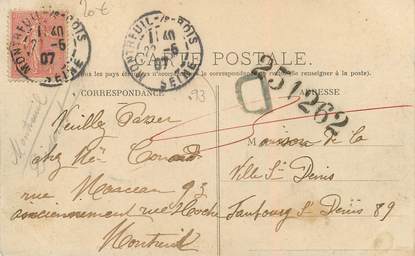 20€
MONTREUIL-s-BOIS
1 40
22 -6
07
SEINE
MONTREUIL-s-BOIS
1 40
22 -6
07
SEINE
CARTE POSTALE.
Tous les pays étrangers n'acceptent pas la correspondance (se renseigner à la poste).
CORRESPONDANCE
ADRESSE
251262
D
93
Montreuil
Veuillez Passer
chez Conard
rue Marceau 93
anciennement rue Hoche
Montreuil
Maison de la
Ville St Denis
Faubourg St Denis 89